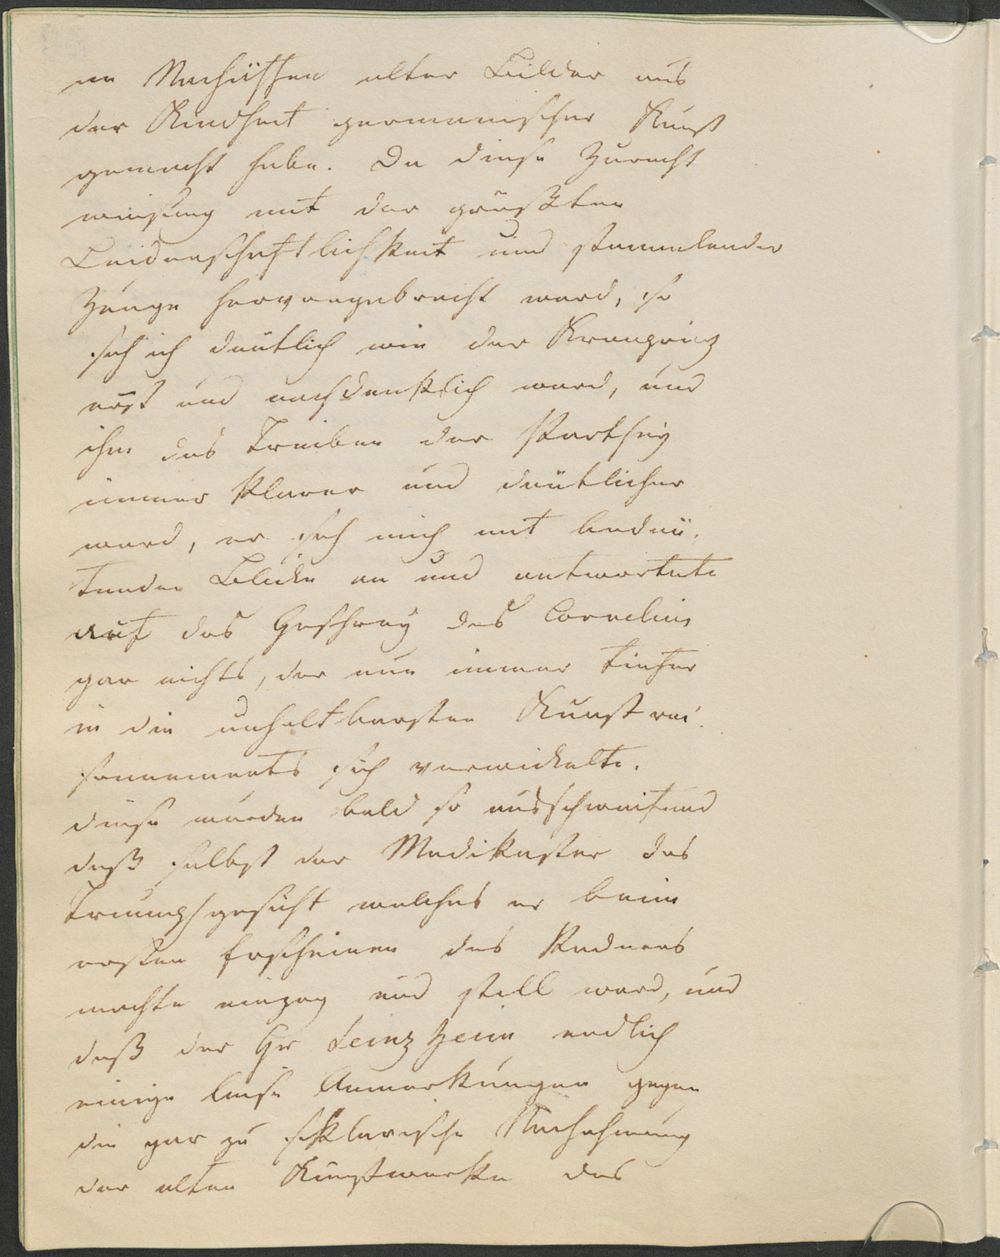 an Nachäffen alter Bilder aus
der Kindheit germanischer Kunst
gemacht habe. Da diese Zurecht
weisung mit der größten
Leidenschaftlichkeit und stammelender
Zunge hervorgebracht ward, so
sah ich deutlich wie der Kronprinz
ernst und nachdenklich ward, und
ihm das Treiben der Parthey
immer klarer und deutlicher
ward, er sah mich mit bedeu-
tenden Blicke an und antwortete
auf das Geschrey des Cornelius
gar nichts, der nun immer tiefer
in die unhaltbarsten Kunstrai-
sonnements sich verwickelte.
diese wurden bald so ausschweifend
daß selbst der Medikaster das
Triumphgesicht welches er beim
ersten Erscheinen des Redners
machte einzog und still ward, und
daß der Gr Seinzheim endlich
einige leise Anmerkungen gegen
die gar zu sklavische Nachahmung
der alten Kunstwerke des